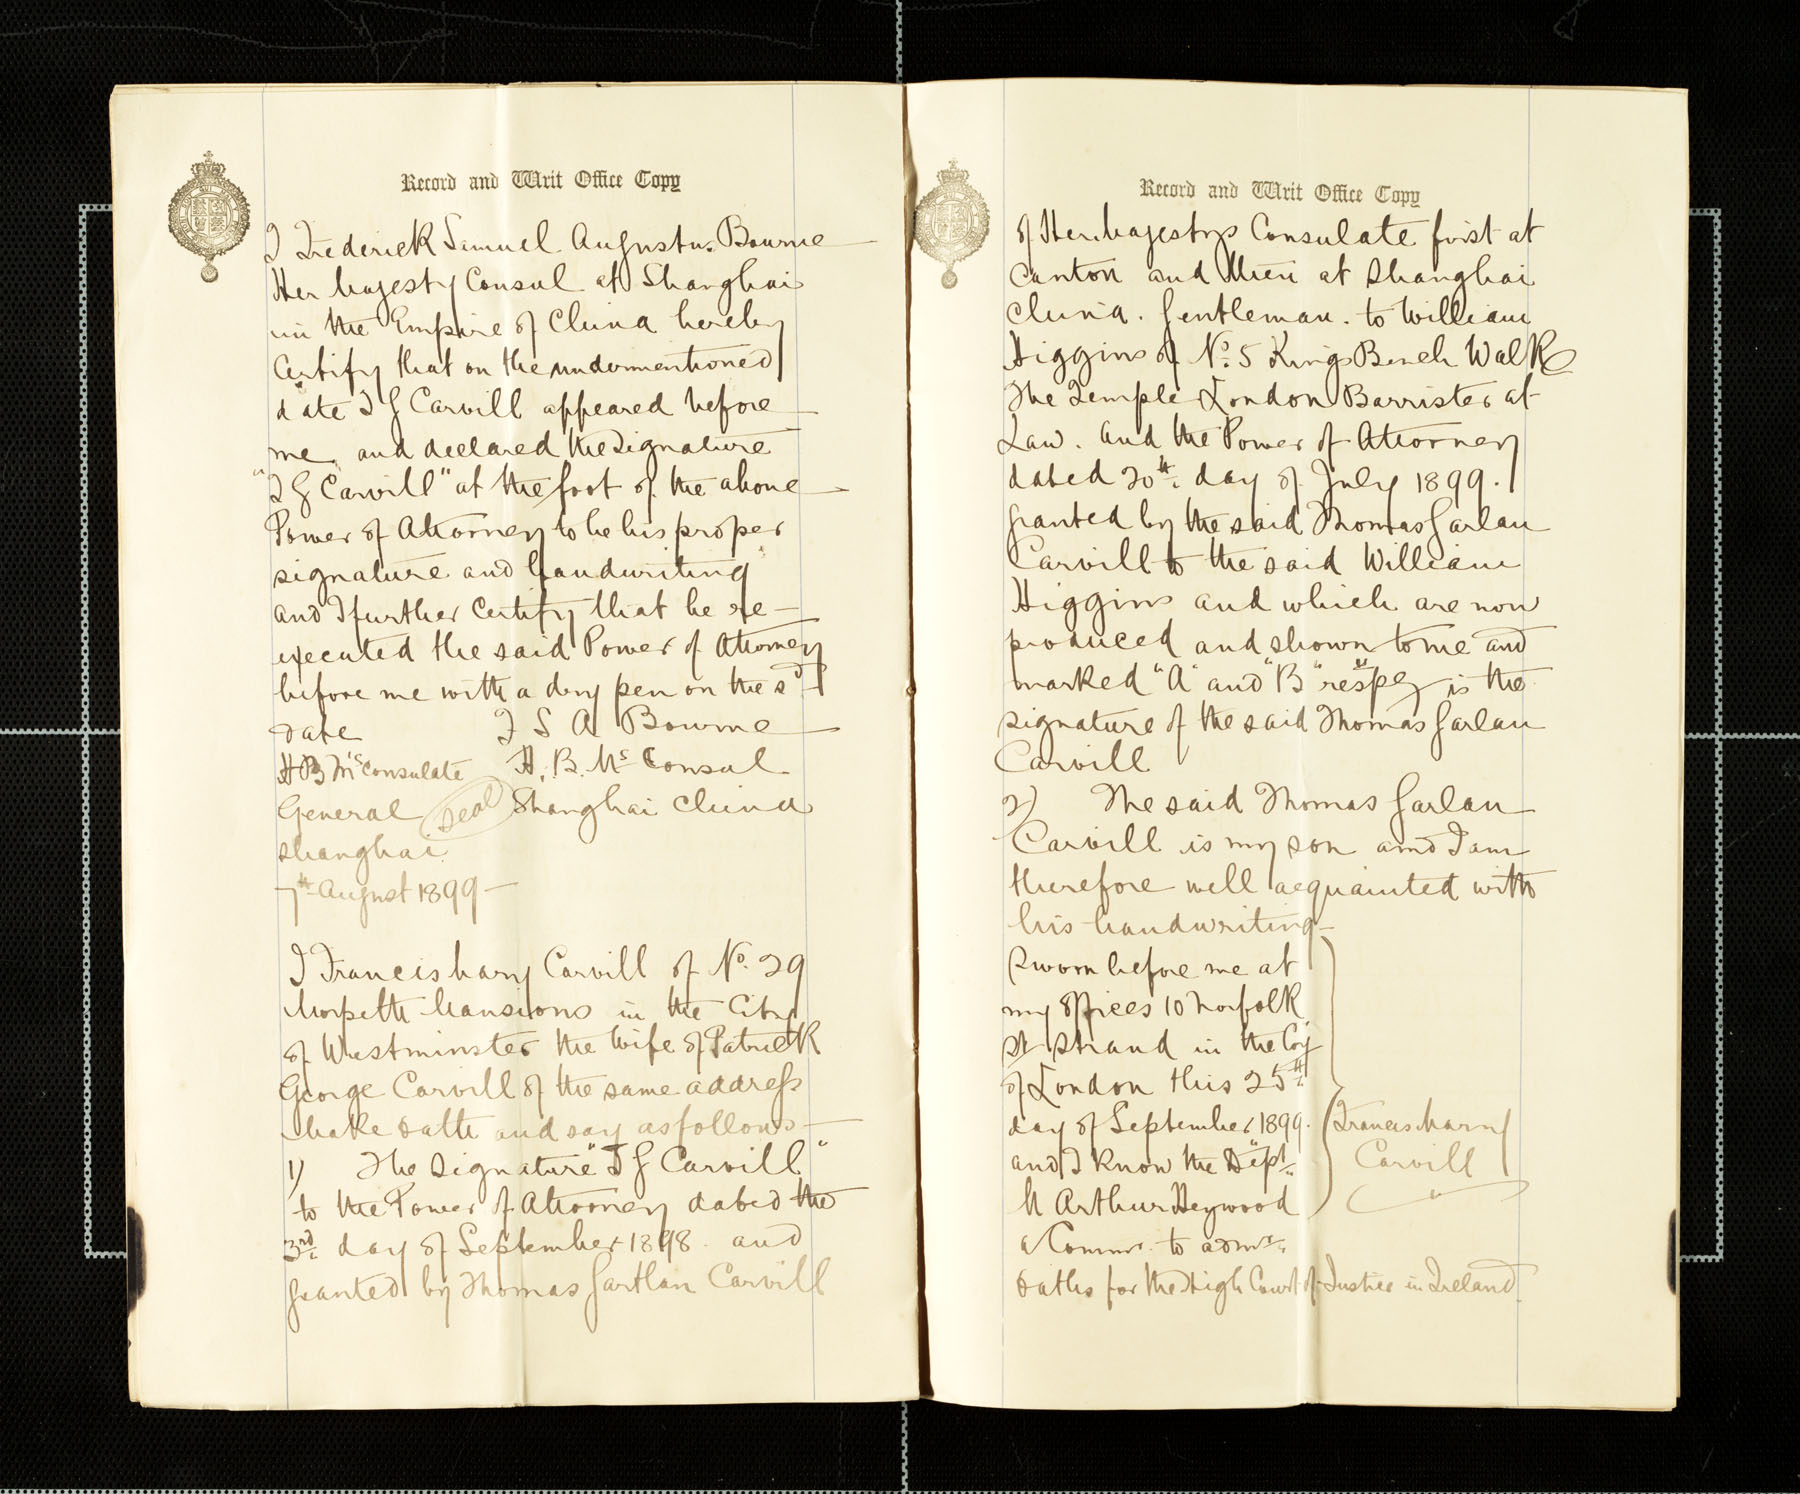 Record and Writ Office Copy
I Frederick Samuel Augustus Bourne
Her Majesty Consul at Shanghai
in the Empire of China hereby
Certify that on the undermentioned
date T G Carvill appeared before
me and declared the signature
"T G Carvill" at the foot of the above
Power of Attorney to be his proper
signature and handwriting
and I further certify that he re-
executed the said Power of Attorney
before me with a dry pen on the sd
date F S A Bourne
H B M's Consulate H. B. Ms Consul
General seal Shanghai China
Shanghai
7th August 1899
I Francis Mary Carvill of No. 29
Morpeth Mansions in the City
of Westminster the Wife of Patrick
George Carvill of the same address
Make Oath and say as follows
1) The Signature "T G Carvill"
to the Power of Attorney dated the
3rd day of September 1898 and
granted by Thomas Gartlan Carvill
Record and Writ Office Copy
of Her Majestys Consulate first at
Canton and then at Shanghai
China. Gentleman. to William
Higgins of No. 5 Kings Bench Walk
The Temple London Barrister at
Law. and the Power of Attorney
dated 20th day of July 1899.
granted by the said Thomas Garlan
Carvill to the said William
Higgins and which are now
produced and shown to me and
marked "A" and "B" respey is the
signature of the said Thomas Garlan
Carvill
2) The said Thomas Garlan
Carvill is my son and I am
therefore well acquainted with
his handwriting
Sworn before me at
my offices 10 Norfolk
St Strand in the Coy
of London this 25th
day of September 1899. Francis Mary
and I know the Dept. Carvill
M Arthur Heywood
a Commr. to admr.
oaths for the High Court of Justice in Ireland.